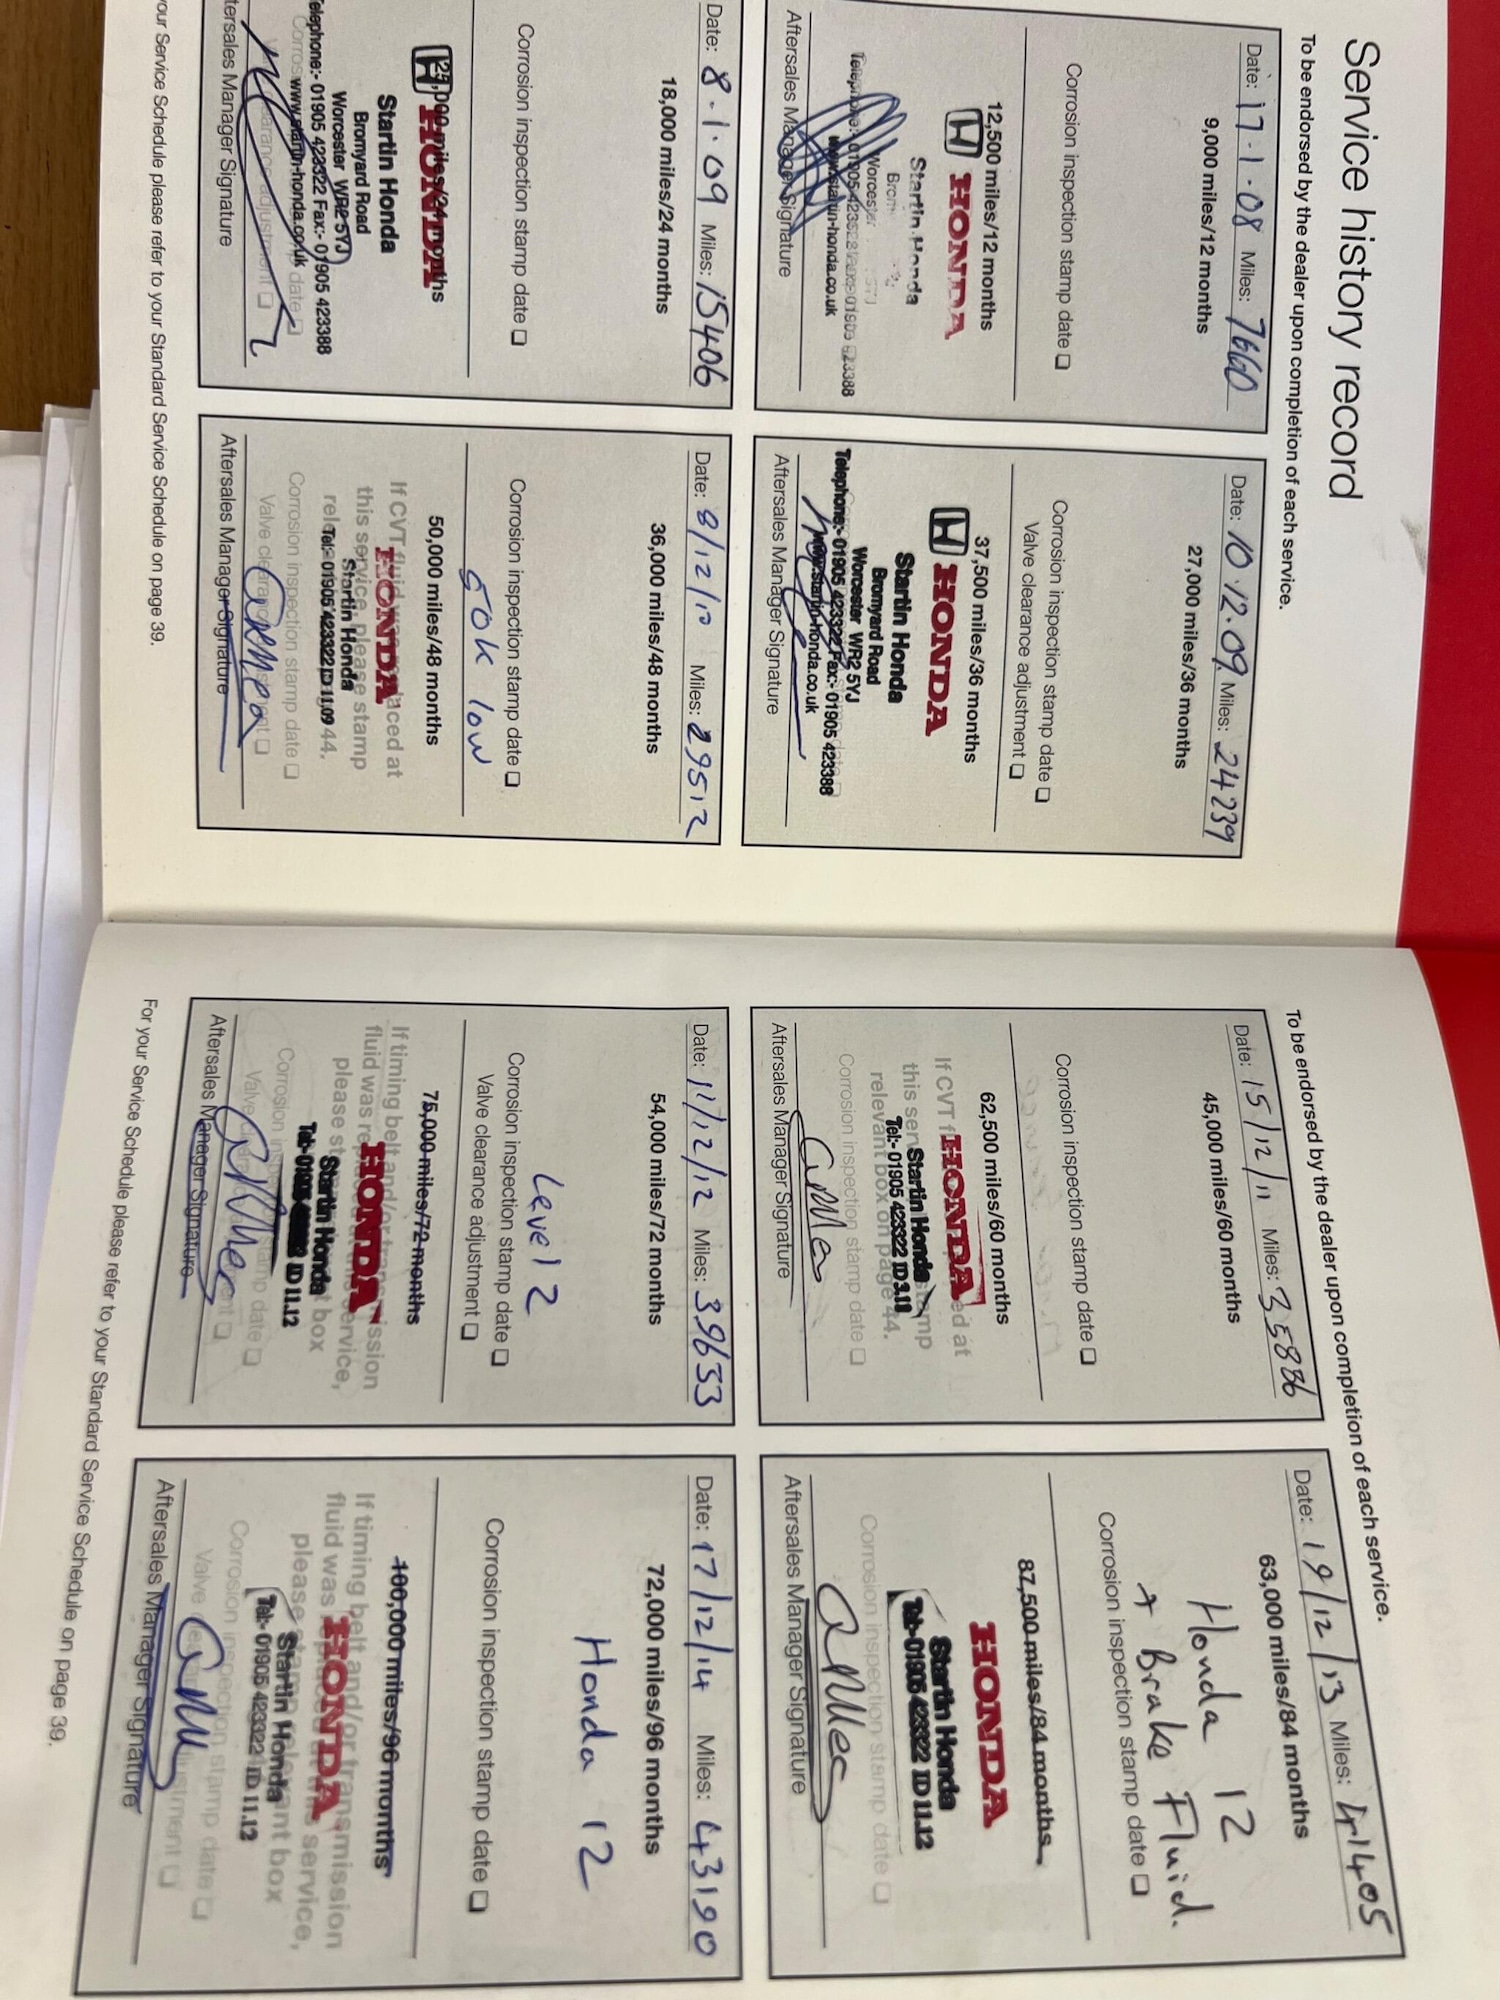 Service history record
To be endorsed by the dealer upon completion of each service.
Date: 17.1.08 Miles: 7660
9,000 miles/12 months
Corrosion inspection stamp date
12,500 miles/12 months
HONDA
Startin Honda
Worcester
www.startin-honda.co.uk
Aftersales Manager Signature
Date: 10.12.09 Miles: 24239
27,000 miles/36 months
Corrosion inspection stamp date
Valve clearance adjustment
37,500 miles/36 months
HONDA
Startin Honda
Bromyard Road
Worcester WR2 5YJ
Telephone:- 01905 423322 Fax:- 01905 423388
www.startin-honda.co.uk
Aftersales Manager Signature
Date: 8.1.09 Miles: 15406
18,000 miles/24 months
Corrosion inspection stamp date
25,000 miles/24 months
HONDA
Startin Honda
Bromyard Road
Worcester WR2 5YJ
elephone:- 01905 423322 Fax:- 01905 423388
www.startin-honda.co.uk
tersales Manager Signature
Date: 8/12/10 Miles: 29512
36,000 miles/48 months
Corrosion inspection stamp date
50k low
50,000 miles/48 months
If CVT fluid was replaced at
this service, please stamp
HONDA
Startin Honda
Tel:- 01905 423322 ID 11.09
Corrosion inspection stamp date
Valve clearance adjustment
Aftersales Manager Signature
our Service Schedule please refer to your Standard Service Schedule on page 39.
To be endorsed by the dealer upon completion of each service.
Date: 15/12/11 Miles: 35886
45,000 miles/60 months
Corrosion inspection stamp date
62,500 miles/60 months
If CVT
HONDA
ed at
this service
Startin Honda
relevant box on page 44.
Tel:- 01905 423322
Corrosion inspection stamp date
Aftersales Manager Signature
Date: 19/12/13 Miles: 41405
63,000 miles/84 months
Honda 12
+ Brake Fluid.
Corrosion inspection stamp date
87,500 miles/84 months
HONDA
Startin Honda
Tel:- 01905 423322 ID 11.12
Corrosion inspection stamp date
Aftersales Manager Signature
Date: 11/12/12 Miles: 39653
54,000 miles/72 months
Level 2
Corrosion inspection stamp date
Valve clearance adjustment
75,000 miles/72 months
If timing belt and/or transmission
HONDA
fluid was
service,
please
box
Startin Honda
ID 11.12
Corrosion inspection stamp date
Aftersales Manager Signature
Date: 17/12/14 Miles: 43190
72,000 miles/96 months
Honda 12
Corrosion inspection stamp date
100,000 miles/96 months
If timing belt and/or transmission
HONDA
fluid was
service,
please
Startin Honda
Tel:- 01905 423322 ID 11.12
Corrosion inspection stamp date
Aftersales Manager Signature
For your Service Schedule please refer to your Standard Service Schedule on page 39.